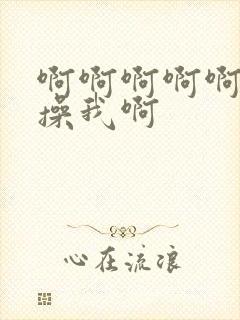 啊啊啊啊啊
操我啊
心在流浪